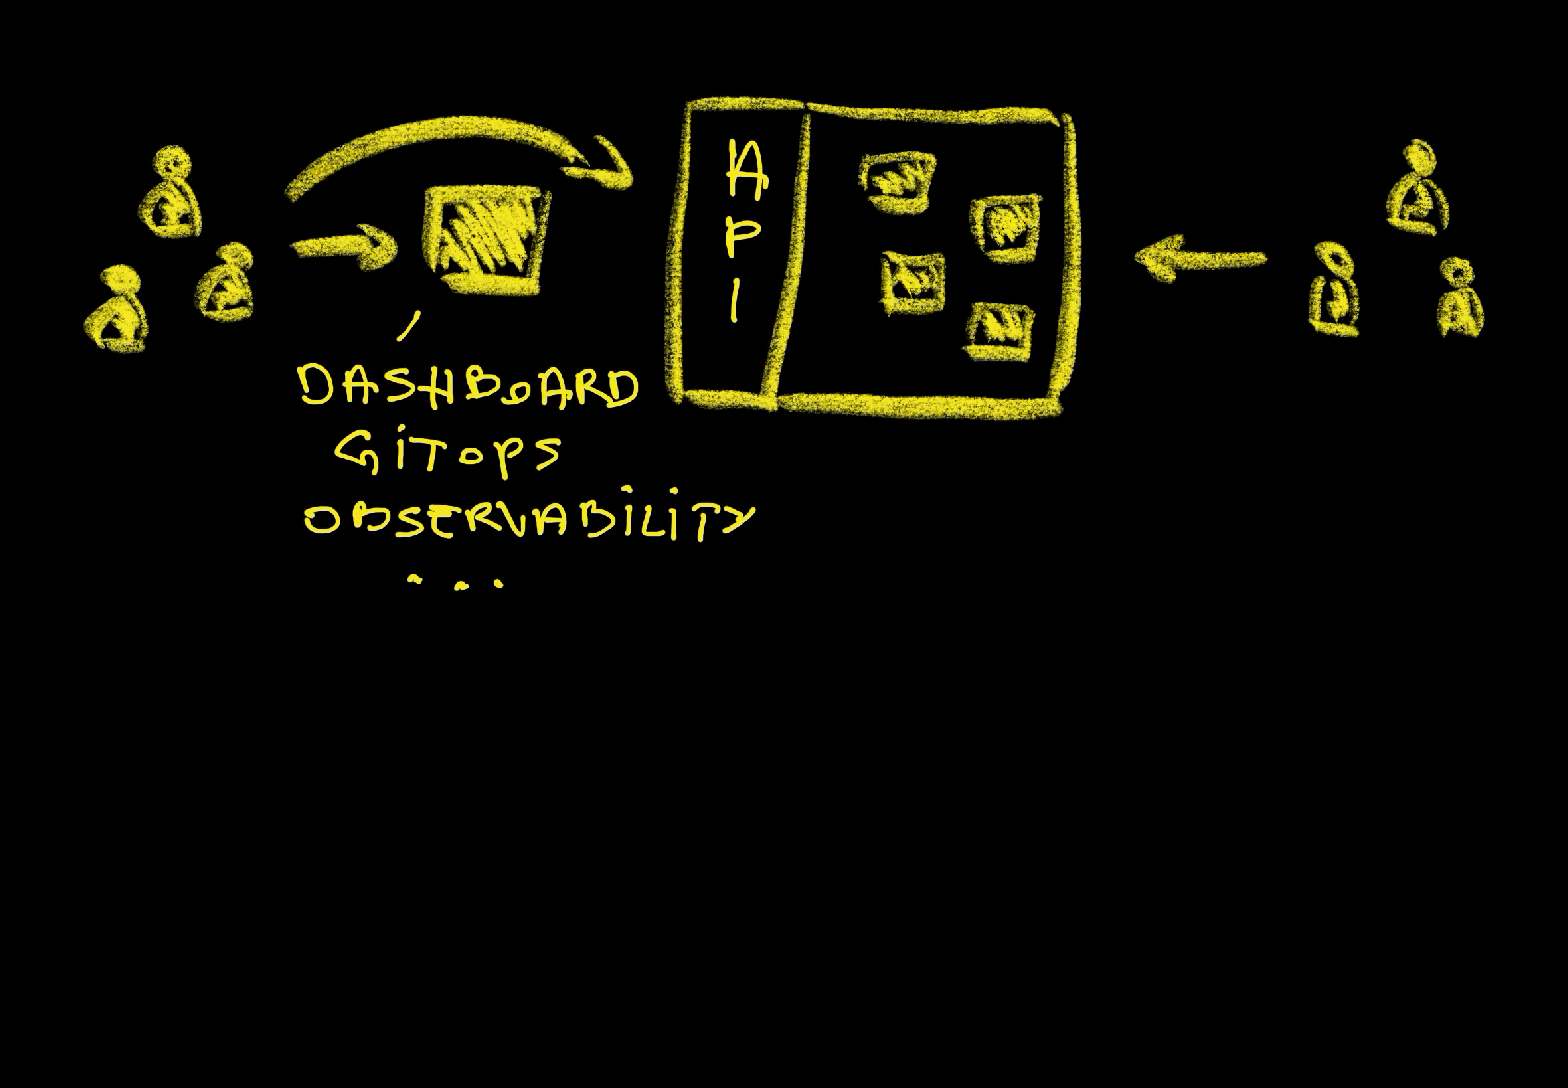 API
DASHBOARD
GiTOPS
OBSERVABiLiTY
...